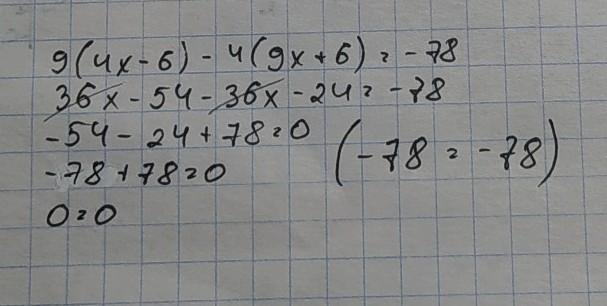 9(4x-6) - 4(9x+6) = -78
36x - 54 - 36x - 24 = -78
-54 - 24 + 78 = 0
(-78 = -78)
-78 + 78 = 0
0 = 0